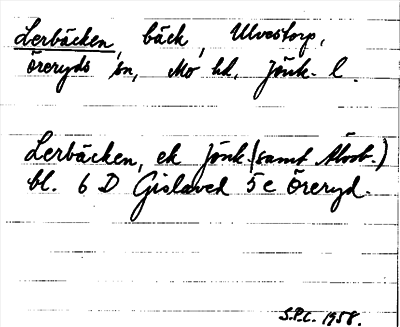 Lerbäcken, bäck, Ulvestorp,
Öreryds sn, Mo hd, Jönk. l.
Lerbäcken, ek Jönk. (samt Älvsb.)
bl. 6 D Gislaved 5 c Öreryd.
S.P.C. 1958.